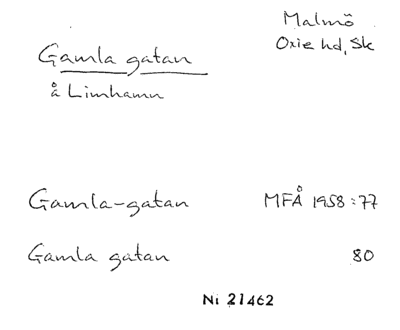 Malmö
Oxie hd, Sk
Gamla gatan
å Limhamn
Gamla-gatan MFÅ 1958:77
Gamla gatan 80
Ni 21462